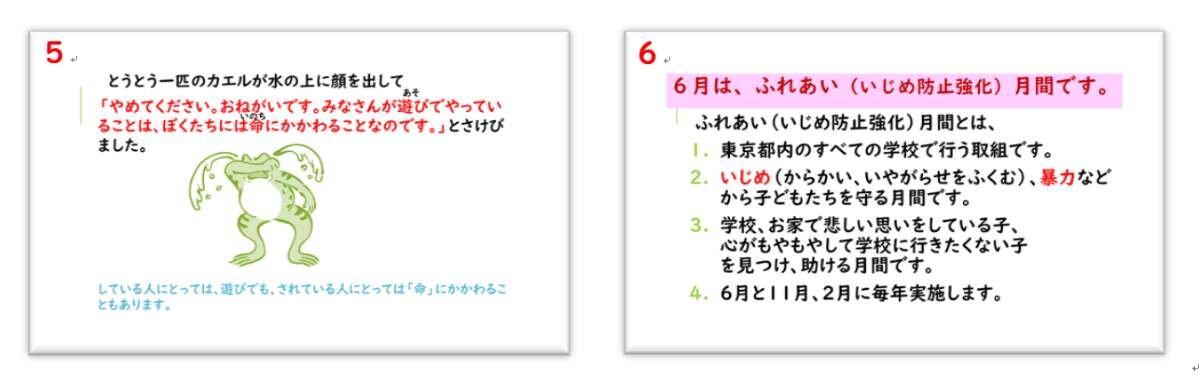 5
とうとう一匹のカエルが水の上に顔を出して
「やめてください。おねがいです。みなさんが遊びでやってい
あそ
ることは、ぼくたちには命にかかわることなのです。」とさけび
いのち
ました。
している人にとっては、遊びでも、されている人にとっては「命」にかかわるこ
ともあります。
6
6月は、ふれあい（いじめ防止強化）月間です。
ふれあい（いじめ防止強化）月間とは、
1. 東京都内のすべての学校で行う取組です。
2. いじめ（からかい、いやがらせをふくむ）、暴力など
から子どもたちを守る月間です。
3. 学校、お家で悲しい思いをしている子、
心がもやもやして学校に行きたくない子
を見つけ、助ける月間です。
4. 6月と11月、2月に毎年実施します。